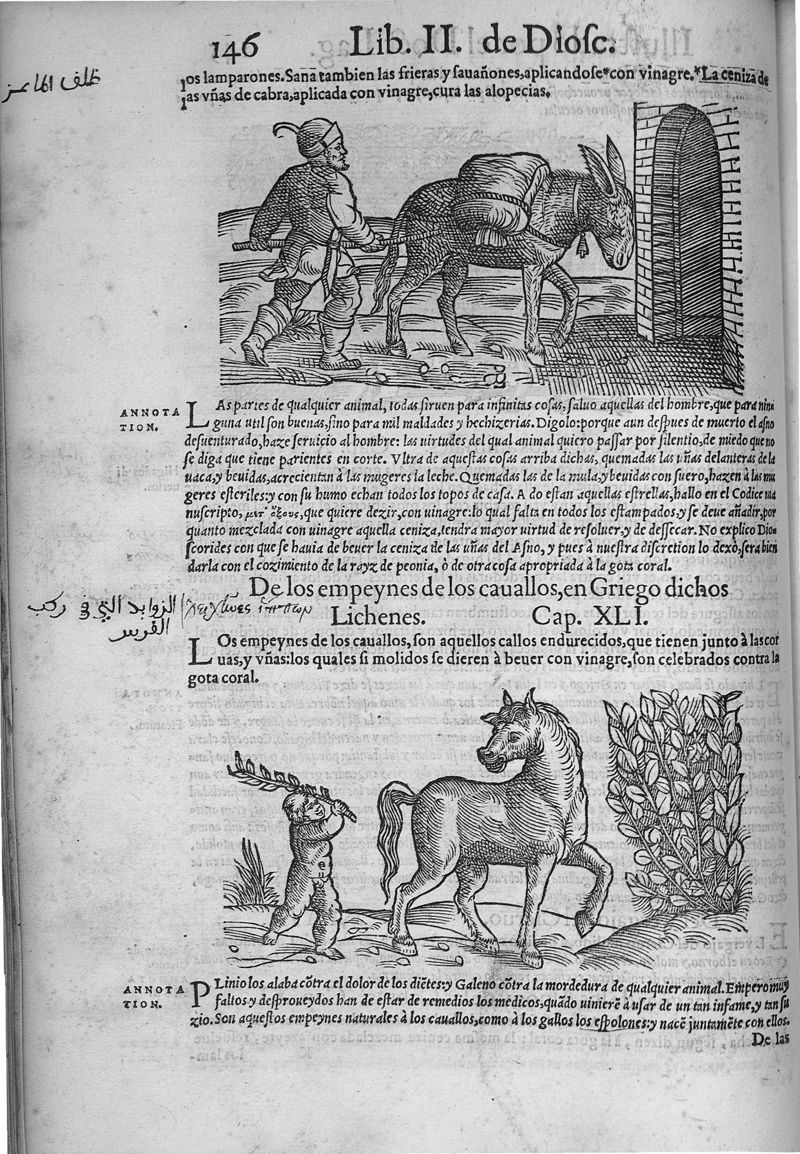 146 Lib. II. de Dioſc.
ظلف الماعز
los lamparones. Sanã tambien las frieras y ſauañones, aplicandoſe* con vinagre.* La ceniza de
las vñas de cabra, aplicada con vinagre, cura las alopecias.
ANNOTA
TION.
LAs partes de qualquier animal, todas ſiruen para infinitas coſas, ſaluo aquellas del hombre, que para nin
guna util ſon buenas, ſino para mil maldades y hechizerias. Digolo: porque aun deſpues de muerto el aſno
deſuenturado, haze ſeruicio al hombre: las virtudes del qual animal quiero paſſar por ſilentio, de miedo que no
ſe diga que tiene parientes en corte. Vltra de aqueſtas coſas arriba dichas, quemadas las uñas delanteras de la
uaca, y beuidas, acrecientan à las mugeres la leche. Quemadas las de la mula, y beuidas con ſuero, hazen à las mu
geres eſteriles: y con ſu humo echan todos los topos de caſa. A do eſtan aquellas eſtrellas, hallo en el Codice ma
nuſcripto, μετ' ὄξους, que quiere dezir, con uinagre: lo qual falta en todos los eſtampados, y ſe deue añadir, por
quanto mezclada con uinagre aquella ceniza, tendra mayor uirtud de reſoluer, y de deſſecar. No explico Dioſ
ſcorides con que ſe hauia de beuer la ceniza de las uñas del Aſno, y pues à nueſtra diſcretion lo dexò, ſera bien
darla con el cozimiento de la rayz de peonia, ò de otra coſa apropriada à la gota coral.
De los empeynes de los cauallos, en Griego dichos
Lichenes. Cap. XLI.
الزوايد التي في ركب
الفرس
λειχῆνες ἵππων
LOs empeynes de los cauallos, ſon aquellos callos endurecidos, que tienen junto à las cor
uas, y vñas: los quales ſi molidos ſe dieren à beuer con vinagre, ſon celebrados contra la
gota coral.
ANNOTA
TION.
PLinio los alaba cõtra el dolor de los diẽtes: y Galeno cõtra la mordedura de qualquier animal. Empero muy
faltos y deſproueydos han de eſtar de remedios los medicos, quãdo uinierẽ à uſar de un tan infame, y tan ſu
zio. Son aqueſtos empeynes naturales à los cauallos, como à los gallos los eſpolones: y nacẽ juntamẽte con ellos.
De las